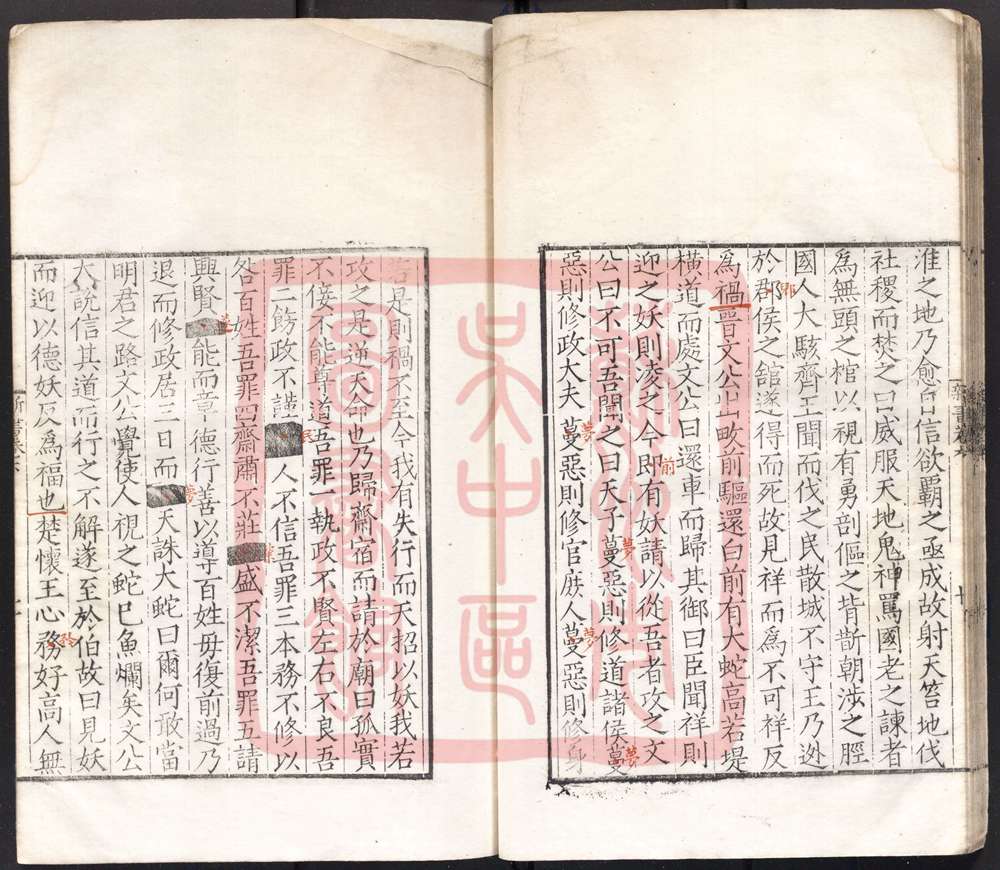 淮之地乃愈自信欲霸之亟成故射天笞地伐
社稷而焚之曰威服天地鬼神罵國老之諫者
為無頭之棺以視有勇剖傴之背斮朝涉之脛
國人大駭齊王聞而伐之民散城不守王乃逃
於郡侯之舘遂得而死故見祥而為不可祥反
郳
為禍晉文公出畋前驅還白前有大蛇高若堤
橫道而處文公曰還車而歸其御曰臣聞祥則
迎之妖則凌之今即有妖請以從吾者攻之文
前
公曰不可吾聞之曰天子蔓惡則修道諸侯蔓
夢
夢
惡則修政大夫蔓惡則修官庶人蔓惡則修身
夢
夢
若是則禍不至今我有失行而天招以妖我若
攻之是逆天命也乃歸齋宿而請於廟曰孤實
不佞不能尊道吾罪一執政不賢左右不良吾
罪二飭政不謹人不信吾罪三本務不修以
民
咎百姓吾罪四齋肅不莊盛不潔吾罪五請
粢
興賢能而章德行善以導百姓毋復前過乃
退而修政居三日而天誅大蛇曰爾何敢當
夢
明君之路文公覺使人視之蛇已魚爛矣文公
大說信其道而行之不解遂至於伯故曰見妖
而迎以德妖反為福也楚懷王心務好高人無
矜
新書卷六